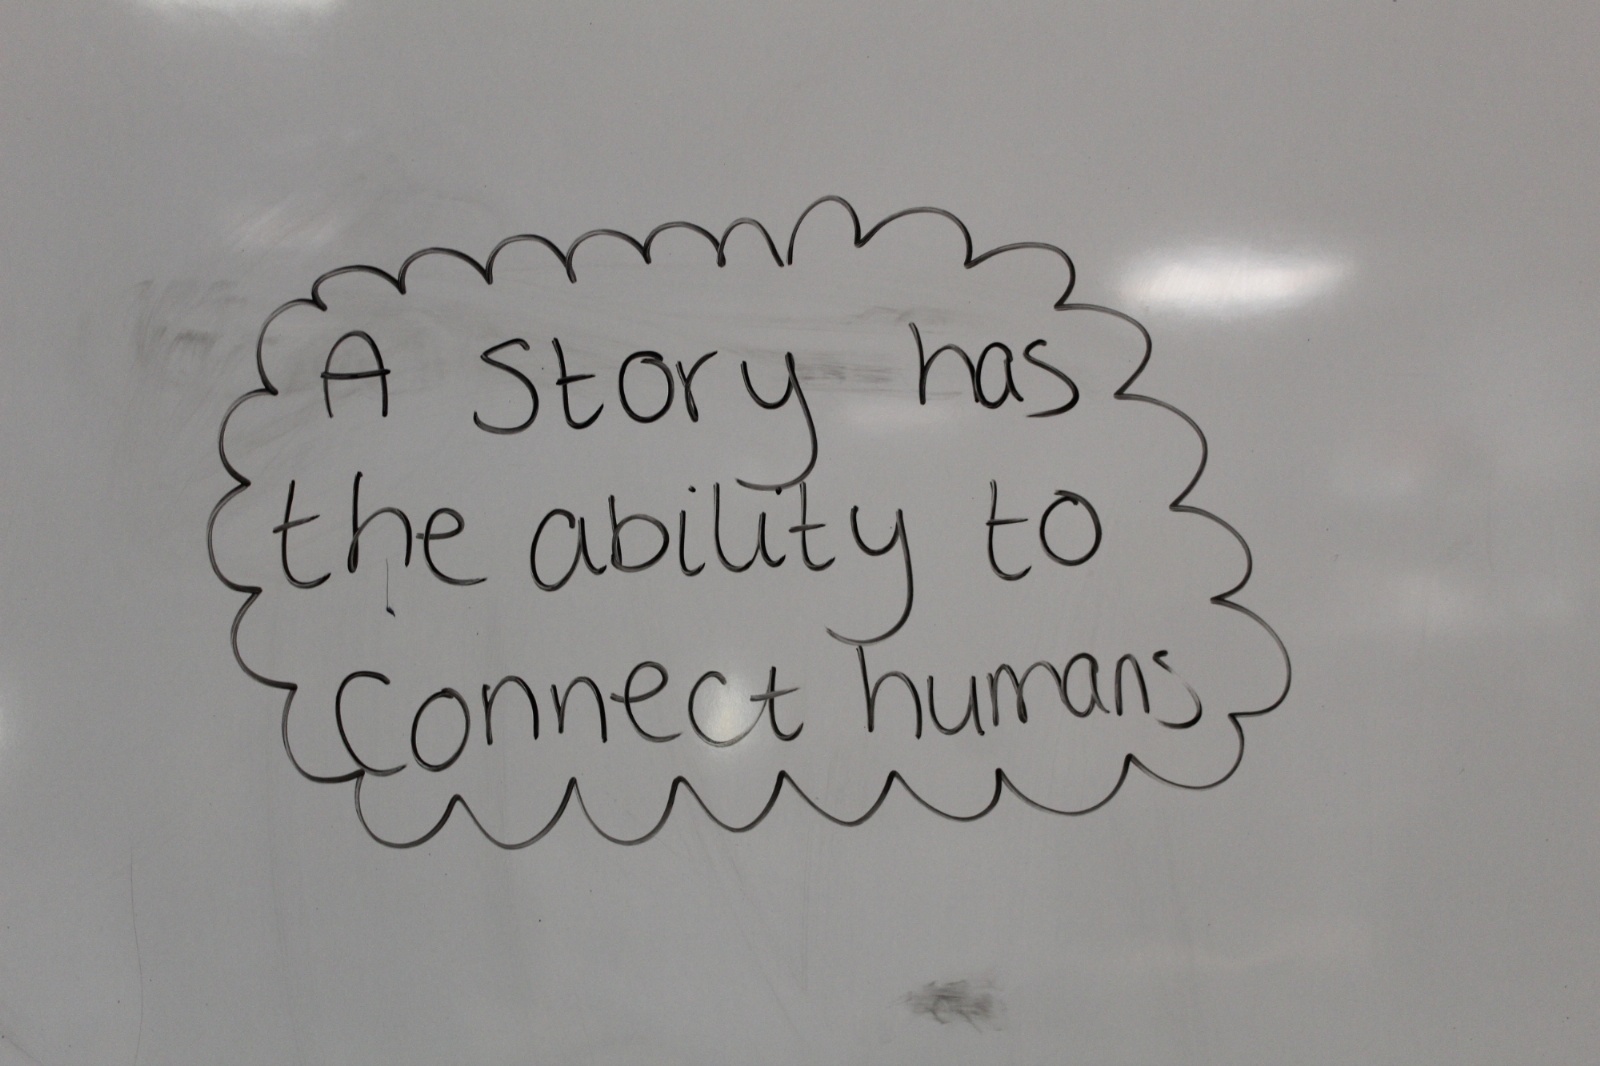 A story has
the ability to
connect humans